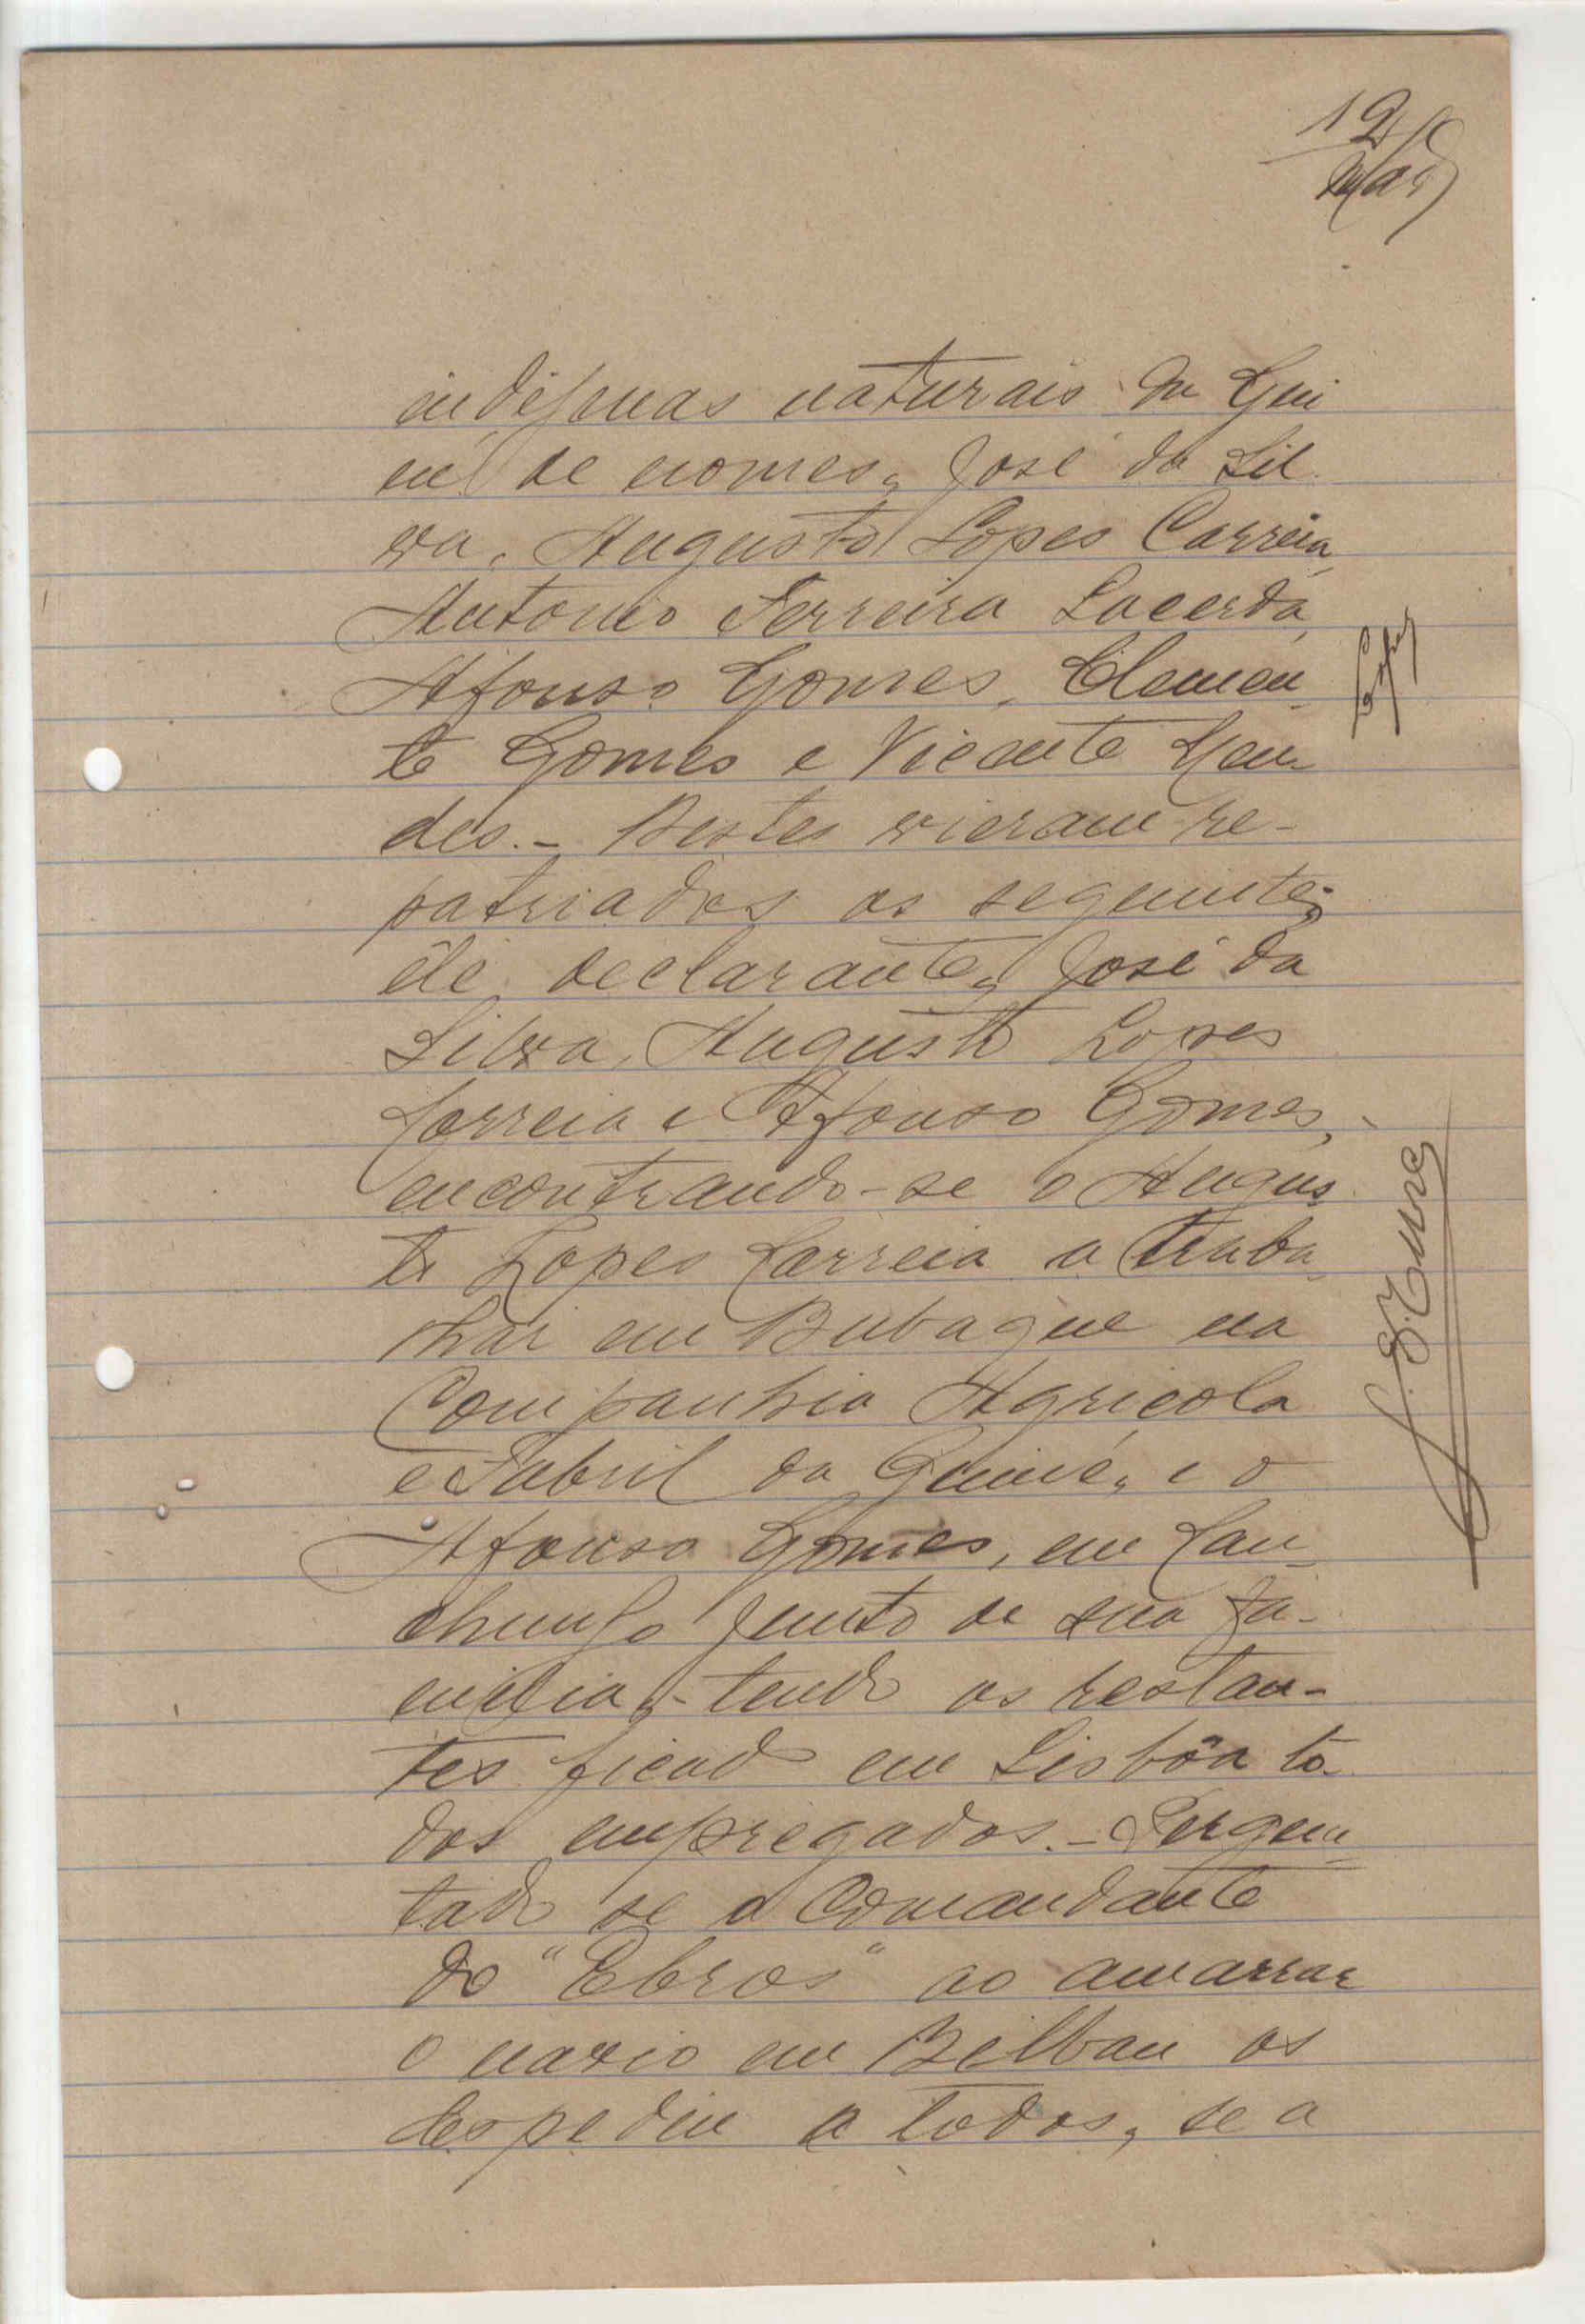 12
indigenas naturais da Gui
né de nomes, José da Sil
va, Augusto Lopes Correia,
Antonio Ferreira Lacerda,
Afonso Gomes, Clemen_
te Gomes e Vicente Men_
des._ Destes vieram re-
patriados os seguintes
êle declarante, José da
Silva, Augusto Lopes
Correia e Afonso Gomes,
encontrando-se o Augus_
to Lopes Correia a traba_
lhar em Bubaque na
Companhia Agricola
e Fabril da Guiné, e o
Afonso Gomes, em Can_
chungo junto de sua fa-
milia,- tendo os restan-
tes ficado em Lisbôa to_
dos empregados._ Pergun_
tado se o Comandante
do "Ebros" ao amarrar
o navio em Bilbau os
despediu a todos, se a
Lopes